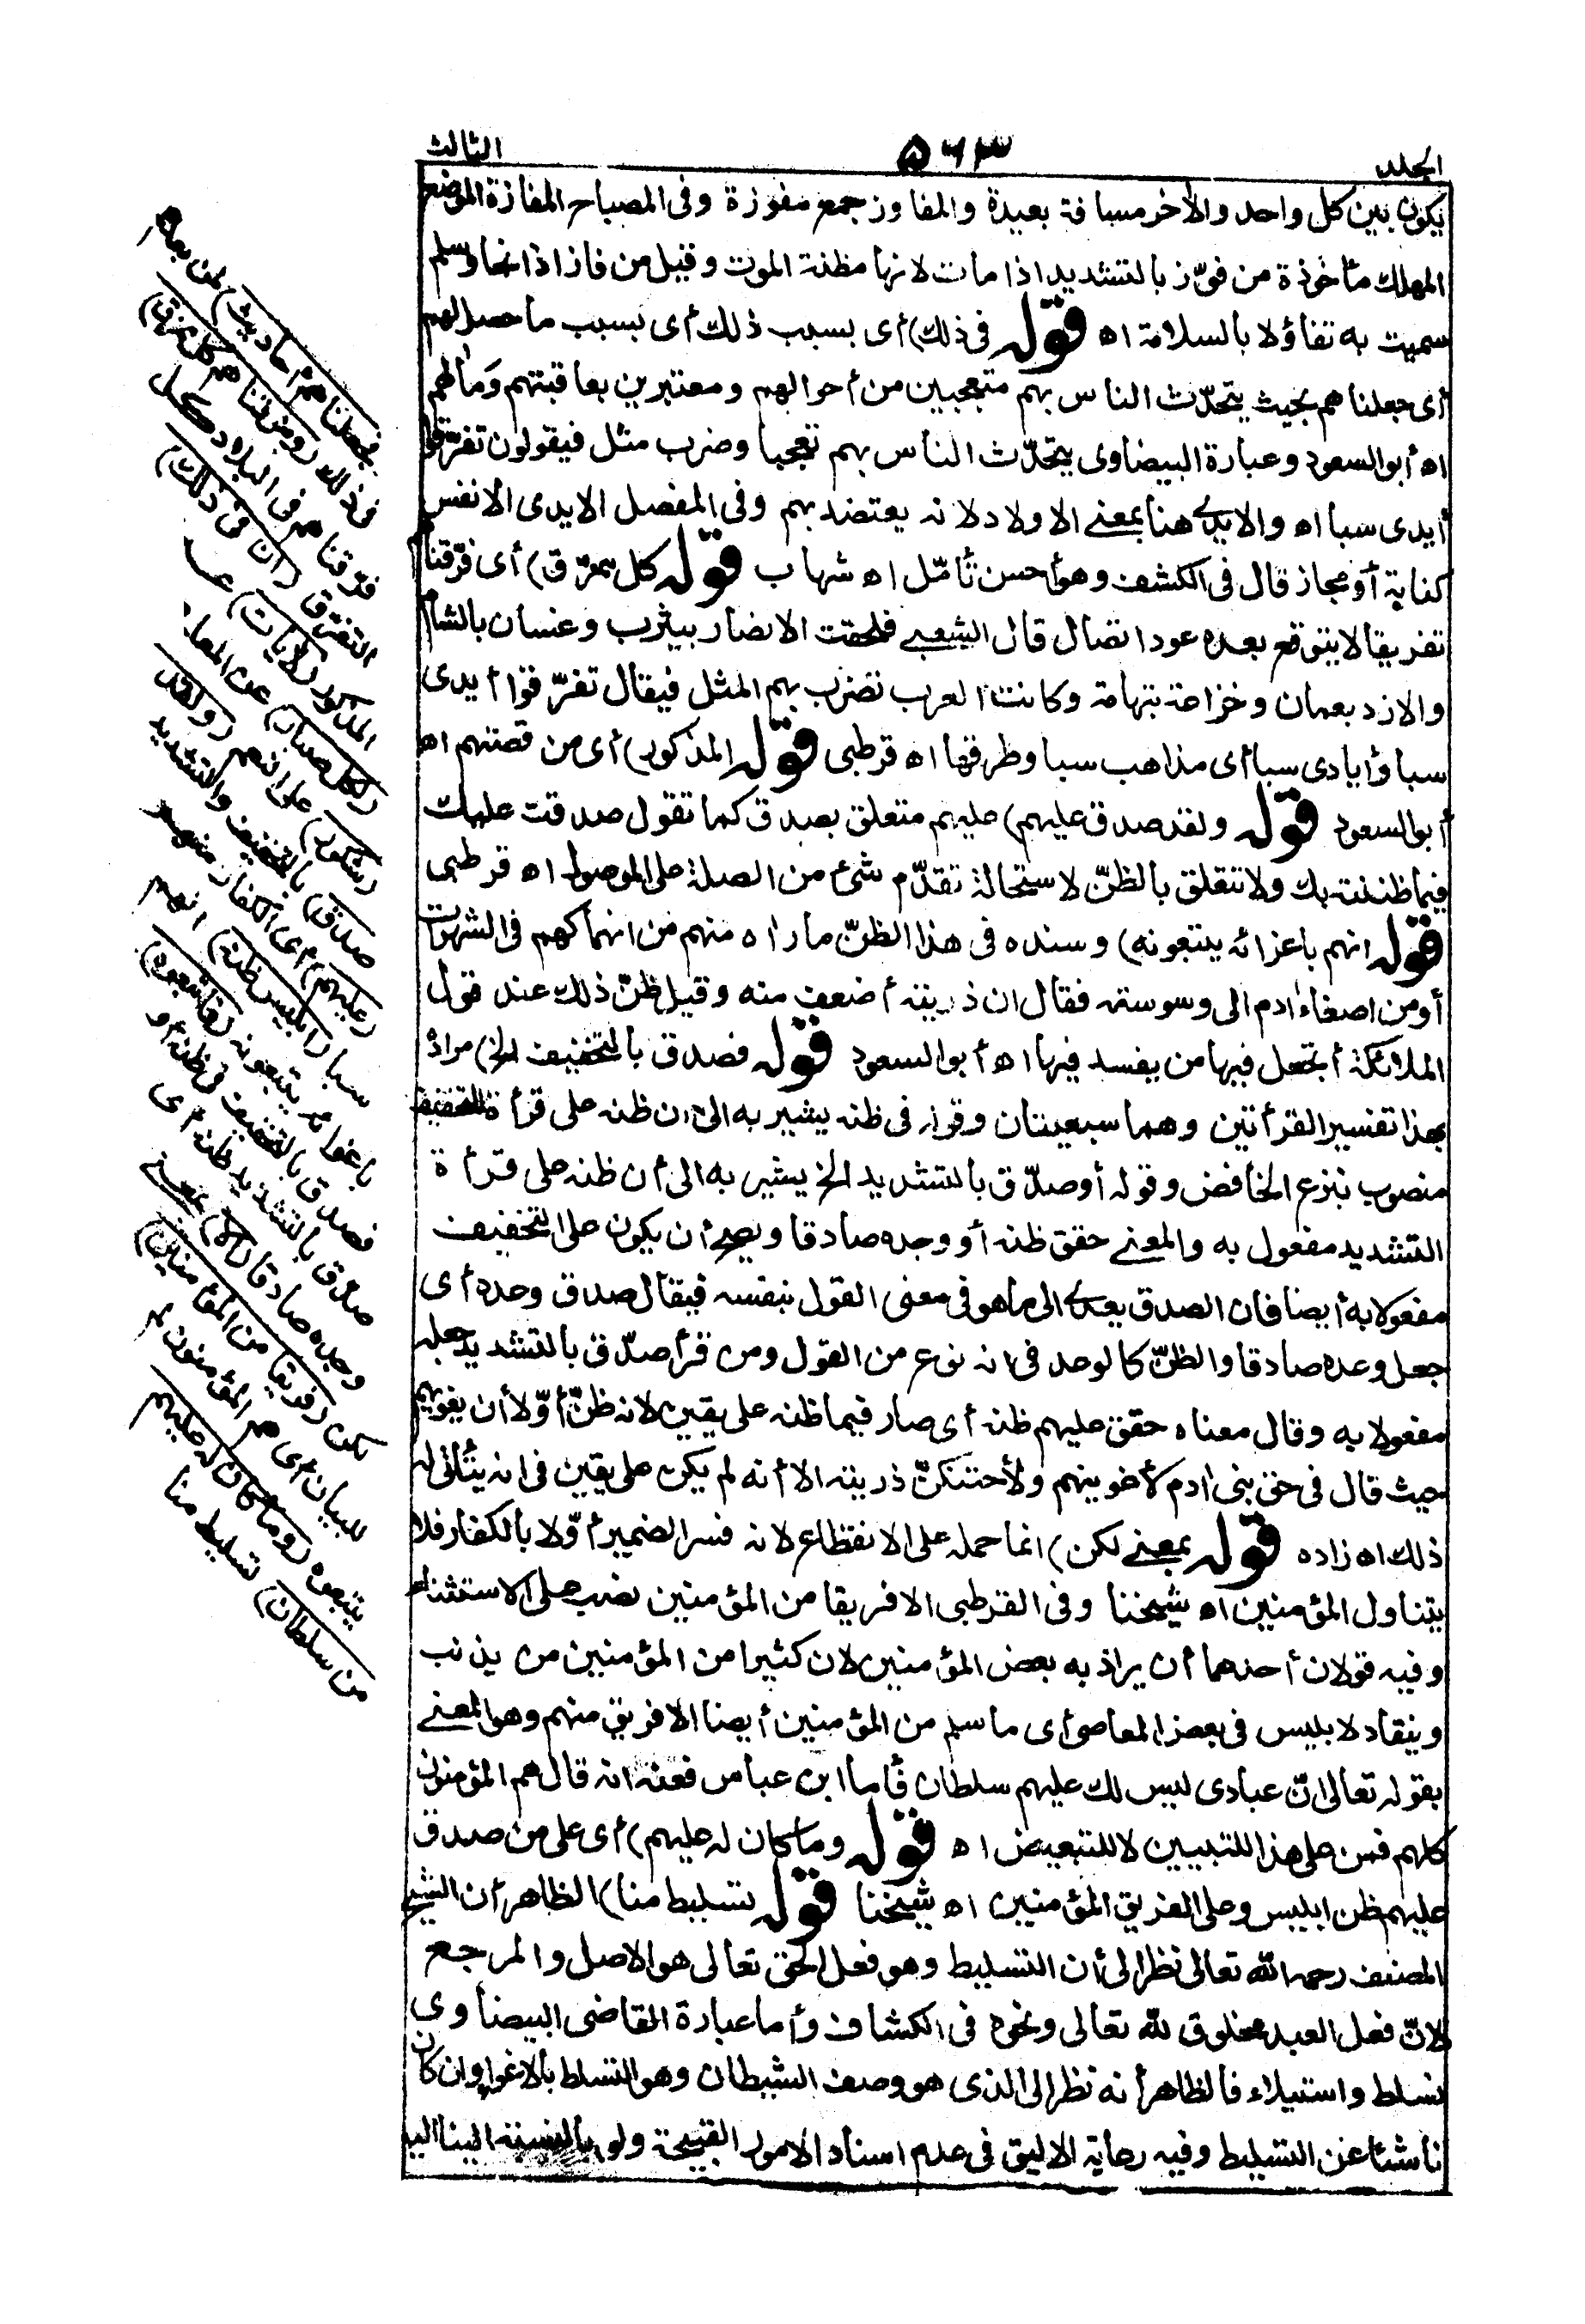 الجلد ٥٦٣ الثالث
يكون بين كل واحد والأخر مسافة بعيدة والمفاوز جمع مفوزة وفى المصباح المفازة الموضع
المهلك مأخوذة من فوّز بالتشديد اذا مات لانها مظنة الموت وقيل من فاز اذا نجا وسلم
سميت به تفاؤلا بالسلامة اه قوله فى ذلك) أى بسبب ذلك أى بسبب ما حصل لهم
أى جعلناهم بحيث يتحدّث الناس بهم متعجبين من أحوالهم ومعتبرين بعاقبتهم ومآلهم
اه أبو السعود وعبارة البيضاوى يتحدّث الناس بهم تعجبا وضرب مثل فيقولون تفرّقوا
أيدى سبا اه والايدے هنا بمعنے الاولاد لانه يعتضد بهم وفى المفصل الايدى الانفس
كناية أو مجاز قال فى الكشف وهو أحسن تأمّل اه شهاب قوله كل ممزّق) أى فرّقناهم
تفريقا لا يتوقع بعده عود اتصال قال الشعبے فلحقت الانصار بيثرب وغسان بالشام
والازد بعمان وخزاعة بتهامة وكانت العرب تضرب بهم المثل فيقال تفرّقوا أيدى
سبا وأيادى سبا أى مذاهب سبا وطرقها اه قرطبى قوله المذكور) أى من قصتهم اه
أبو السعود قوله ولقد صدق عليهم) عليهم متعلق بصدق كما تقول صدقت عليك
فيما ظننته بك ولا تتعلق بالظنّ لاستحالة تقدّم شئ من الصلة على الموصول اه قرطبى
قوله انهم باغوائه يتبعونه) وسنده فى هذا الظنّ ما راه منهم من انهماكهم فى الشهوات
أو من اصغاء ادم الى وسوسته فقال ان ذريته أضعف منه وقيل ظنّ ذلك عند قول
الملائكة أتجعل فيها من يفسد فيها اه أبو السعود قوله فصدق بالتخفيف الخ) مراده
بهذا تفسير القرأتين وهما سبعيتان وقوله فى ظنه يشير به الى ان ظنه على قرأة التخفيف
منصوب بنزع الخافض وقوله أو صدّق بالتشديد الخ يشير به الى أن ظنه على قرأة
التشديد مفعول به والمعنے حقق ظنه أو وجده صادقا ويصح أن يكون على التخفيف
مفعولا به أيضا فان الصدق يعدے الى ما هو فى معنى القول بنفسه فيقال صدق وعده أى
جعل وعده صادقا والظنّ كالوعد فى انه نوع من القول ومن قرأ صدّق بالتشديد جعله
مفعولا به وقال معناه حقق عليهم ظنه أى صار فيما ظنه على يقين لانه ظنّ أوّلا أن يغويهم
حيث قال فى حق بنى ادم لأغوينهم ولأحتنكنّ ذريته الا أنه لم يكن على يقين فى انه يتأتى له
ذلك اه زاده قوله بمعنے لكن) انما حمله على الانقطاع لانه فسر الضمير أوّلا بالكفار فلا
يتناول المؤمنين اه شيخنا وفى القرطبى الا فريقا من المؤمنين نصب على الاستثناء
وفيه قولان أحدهما أن يراد به بعض المؤمنين لان كثيرا من المؤمنين من يذنب
وينقاد لابليس فى بعض المعاصى أى ما سلم من المؤمنين أيضا الا فريق منهم وهو المعنے
بقوله تعالى انّ عبادى ليس لك عليهم سلطان فأما ابن عباس فعنه انه قال هم المؤمنون
كلهم فمن على هذا للتبيين لا للتبعيض اه قوله وما كان له عليهم) أى على من صدق
عليهم ظن ابليس وعلى الفريق المؤمنين اه شيخنا قوله تسليط منا) الظاهر أن الشيخ
المصنف رحمه الله تعالى نظر الى أن التسليط وهو فعل الحق تعالى هو الاصل والمرجع
لانّ فعل العبد مخلوق لله تعالى ونحوه فى الكشاف وأما عبارة القاضى البيضاوى
تسلط واستيلاء فالظاهر أنه نظر الى الذى هو وصف الشيطان وهو التسلط بالاغواء وان كان
ناشئا عن التسليط وفيه رعاية الاليق فى عدم اسناد الامور القبيحة ولو بالنسبة الينا اليه
(فجعلناهم أحاديث) لمن بعدهم
فى ذلك (ومزقناهم كل ممزق)
فرّقناهم فى البلاد كل
التفرّق (ان فى ذلك)
المذكور (لايات) عبرا
(لكل صبار) عن المعاصى
(شكور) على النعم (ولقد
صدق) بالتخفيف والتشديد
(عليهم) أى الكفار منهم
سبا (ابليس ظنه) انهم
باغوائه يتبعونه (فاتبعوه)
فصدق بالتخفيف فى ظنه أو
صدّق بالتشديد ظنه أى
وجده صادقا (الا) بمعنے
لكن (فريقا من المؤمنين)
للبيان أى هم المؤمنون لم
يتبعوه (وما كان له عليهم
من سلطان) تسليط منا